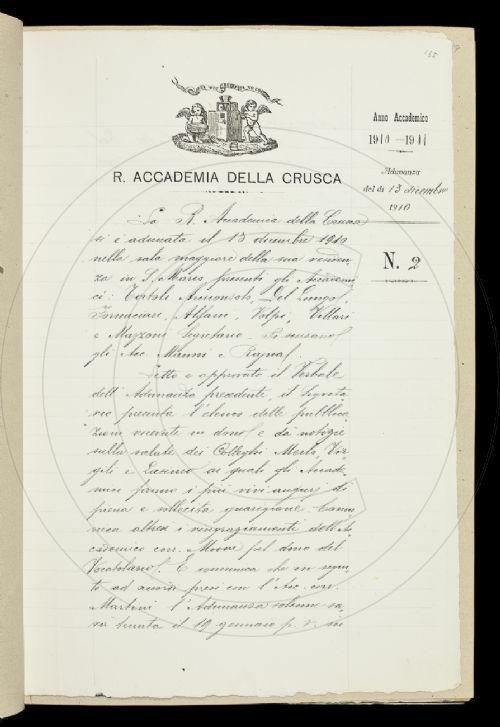 155
R. ACCADEMIA DELLA CRUSCA
Anno Accademico
1910 — 1911
Adunanza
del dì 13 dicembre
1910
N. 2
La R. Accademia della Crusca
si è adunata il 13 dicembre 1910
nella sala maggiore della sua residen
za in S. Marco presenti gli Accademi
ci: Tortoli Arciconsolo, Del Lungo,
Fornaciari, Alfani, Volpi, Villari
e Mazzoni Segretario. Si scusano
gli Acc. e Rajna.
Letto e approvato il Verbale
dell'Adunanza precedente, il Segreta
rio presenta l'elenco delle pubblica
zioni ricevute in dono e dà notizie
sulla salute dei Colleghi Vir
gili e ai quali gli Accade
mici fanno i più vivi auguri di
piena e sollecita guarigione. Comu
nica altresì i ringraziamenti dell'Ac
cademico corr. pel dono del
Vocabolario. E comunica che in segui
to ad accordi presi con l'Acc. corr.
Martini l'Adunanza solenne sa
rà tenuta il 19 gennaio p. v. in